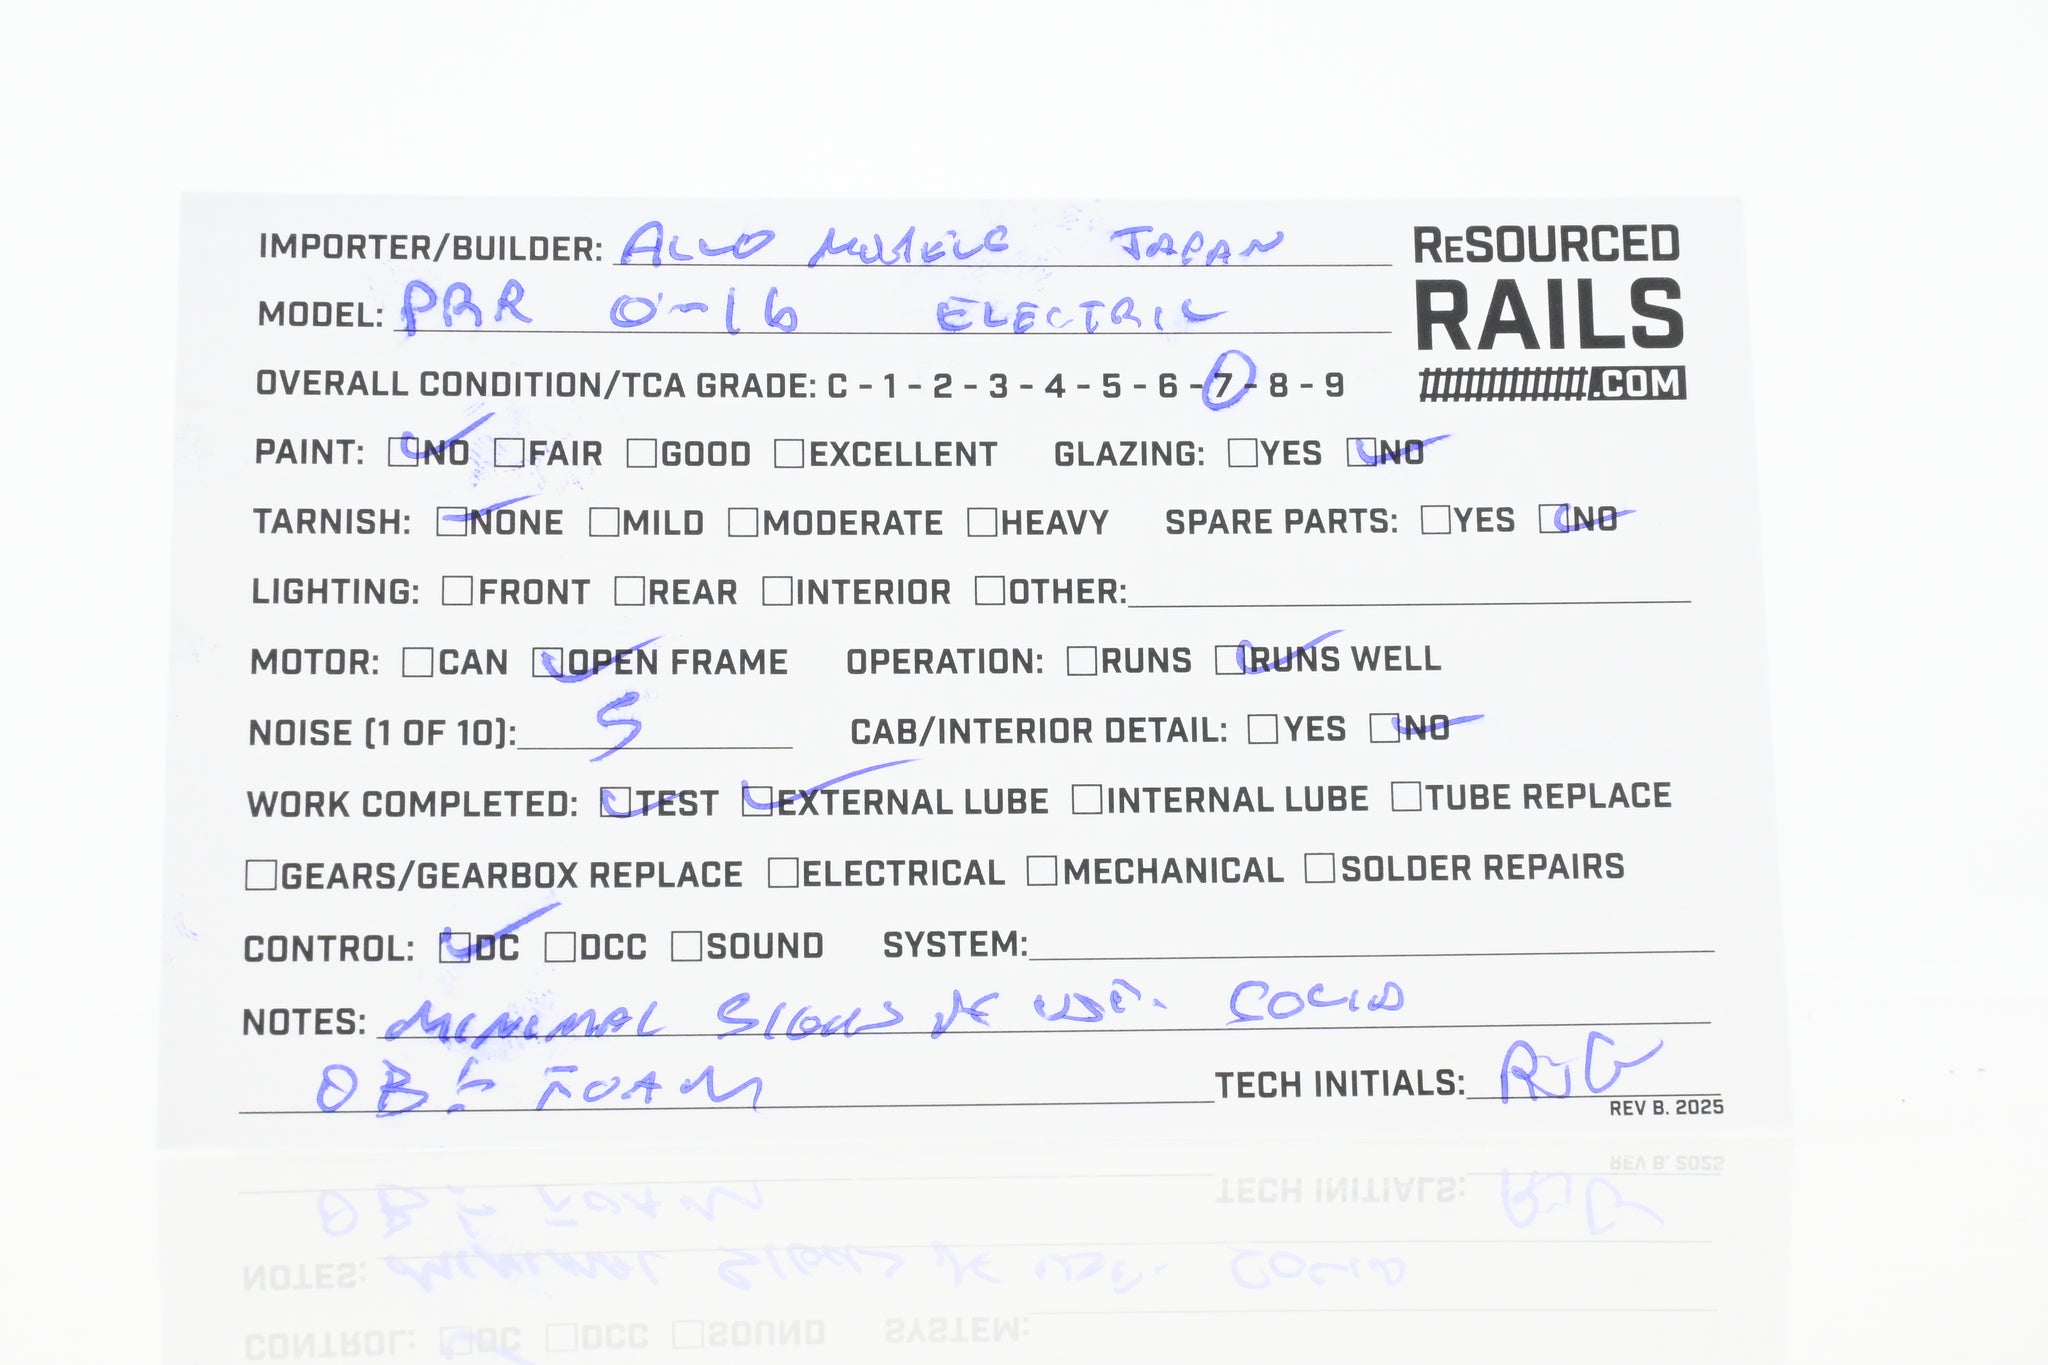 IMPORTER/BUILDER: ALCO MODELS JAPAN
MODEL: PRR O-1b ELECTRIC
RESOURCED
RAILS
.COM
OVERALL CONDITION/TCA GRADE: C - 1 - 2 - 3 - 4 - 5 - 6 - 7 - 8 - 9
PAINT: ☑NO ☐FAIR ☐GOOD ☐EXCELLENT GLAZING: ☐YES ☑NO
TARNISH: ☑NONE ☐MILD ☐MODERATE ☐HEAVY SPARE PARTS: ☐YES ☑NO
LIGHTING: ☐FRONT ☐REAR ☐INTERIOR ☐OTHER:
MOTOR: ☐CAN ☑OPEN FRAME OPERATION: ☐RUNS ☑RUNS WELL
NOISE (1 OF 10): 5 CAB/INTERIOR DETAIL: ☐YES ☑NO
WORK COMPLETED: ☑TEST ☑EXTERNAL LUBE ☐INTERNAL LUBE ☐TUBE REPLACE
☐GEARS/GEARBOX REPLACE ☐ELECTRICAL ☐MECHANICAL ☐SOLDER REPAIRS
CONTROL: ☑DC ☐DCC ☐SOUND SYSTEM:
NOTES: MINIMAL SIGNS OF USE. SOLID
OB & FOAM TECH INITIALS: RJG
REV B. 2025